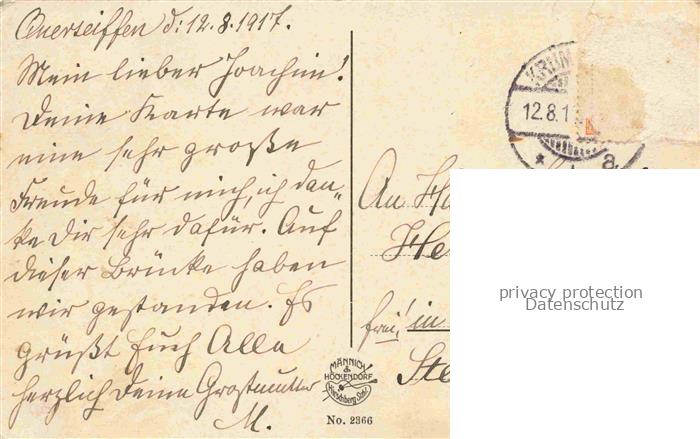 Querseiffen d: 12.8.1917.
Mein lieber Joachim!
Deine Karte war
eine sehr große
Freude für mich, ich dan„
ke Dir sehr dafür. Auf
dieser Brücke haben
wir gestanden. Es
grüßt Euch Alle
herzlich Deine Großmutter
M.
KRUM
12.8.1
a
An
frei! in
MÄNNICH
&
HÖCKENDORF
Hirschberg Schl.
No. 2366
privacy protection
Datenschutz